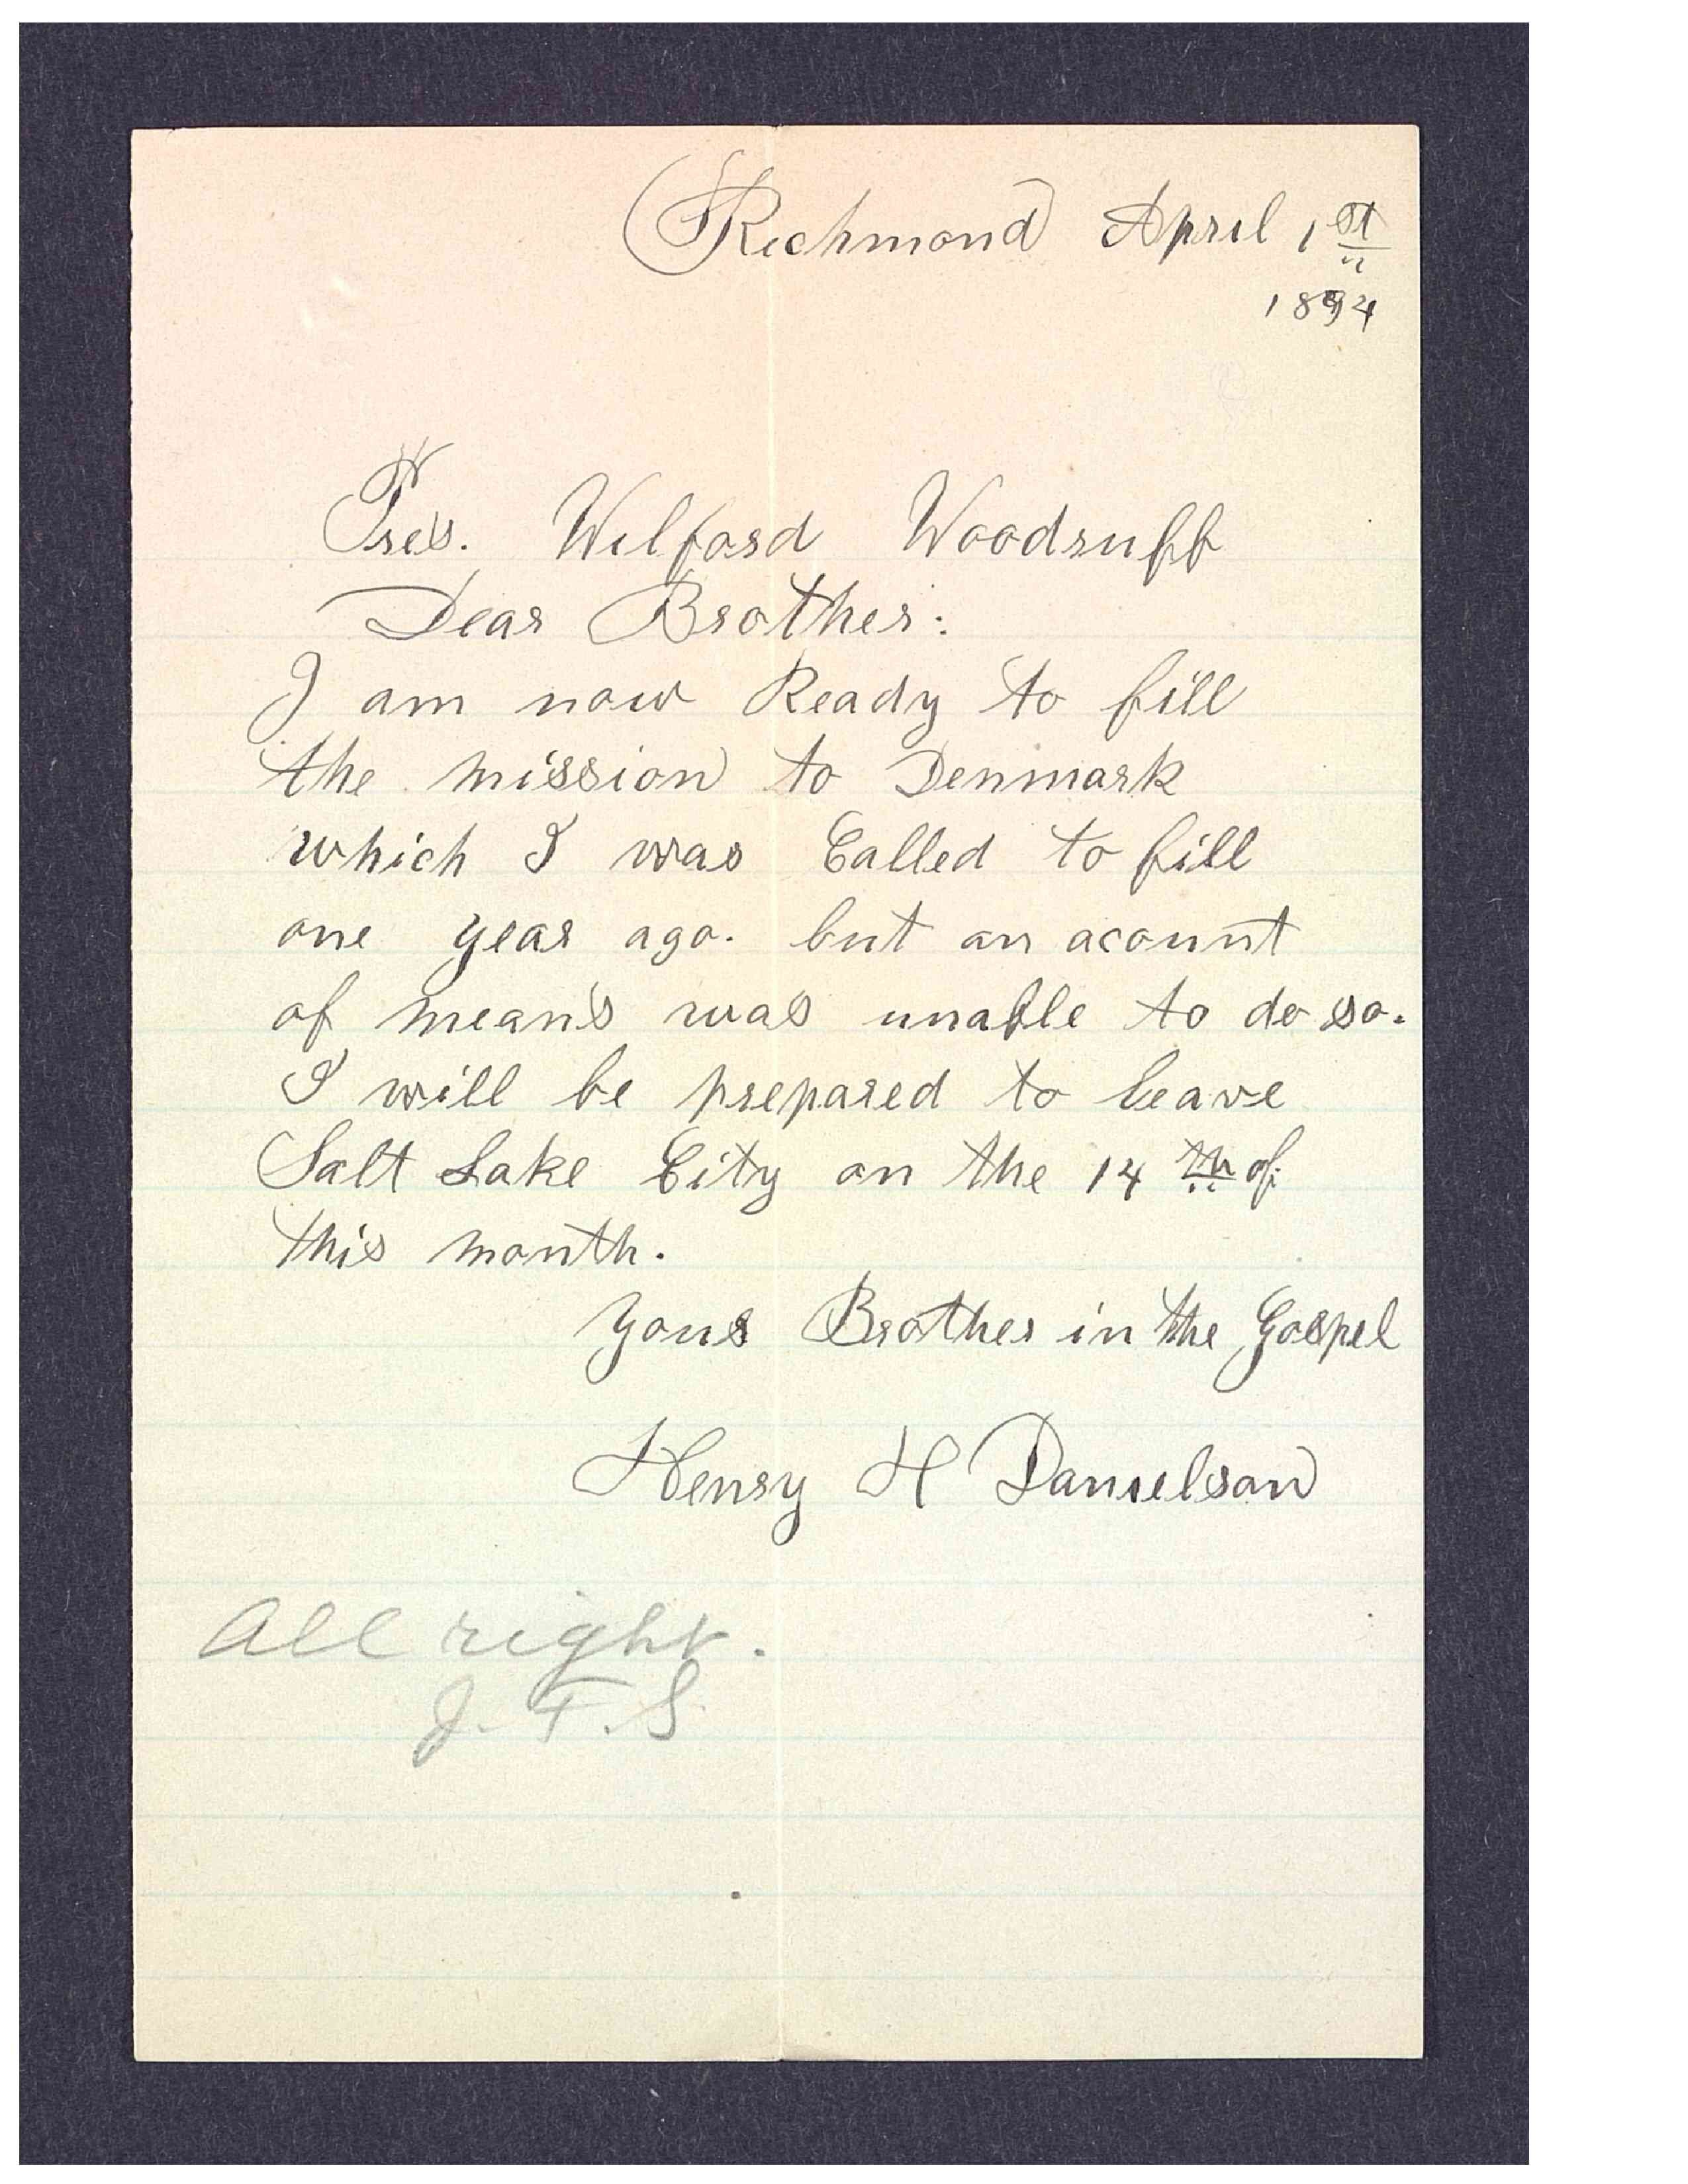 Richmond April 1st
1894
Pres. Wilford Woodruff
Dear Brother:
I am now Ready to fill
the mission to Denmark
which I was Called to fill
one year ago. but on acount
of means was unable to do so.
I will be prepared to leave
Salt Lake City on the 14th of
this month.
Your Brother in the Gospel
Henry H Danielson
All right.
J. F. S.